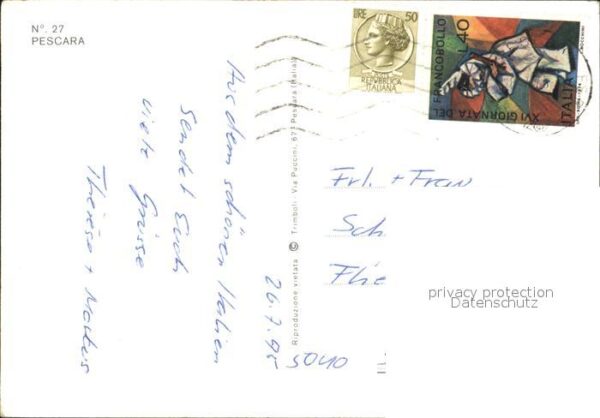 N°. 27
PESCARA
Aus dem schönen Italien
Sendet Euch
viele Grüsse
Therese +
26.7.95
Riproduzione vietata © Trimboli - Via Puccini, 67 Pescara (Italia)
LIRE 50
REPVBBLICA
ITALIANA
XVI GIORNATA DEL FRANCOBOLLO
L.40
ITALIA
Frl. + Frau
Sch
Flie
5040
privacy protection
Datenschutz